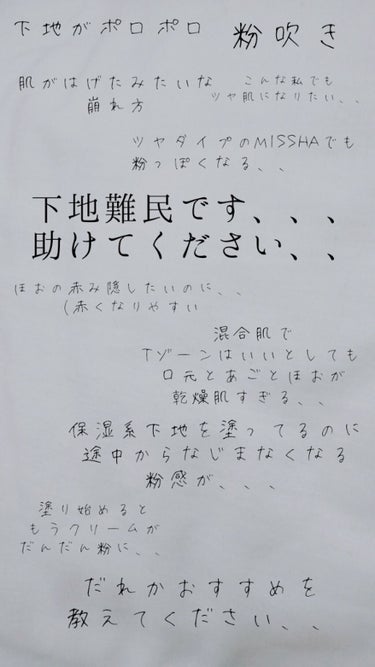 下地がポロポロ
粉吹き
肌がはげたみたいな
崩れ方
こんな私でも
ツヤ肌になりたい、、
ツヤタイプのMISSHAでも
粉っぽくなる、、
下地難民です、、、
助けてください、、
ほおの赤み隠したいのに、、
(赤くなりやすい
混合肌で
Tゾーンはいいとしても
口元とあごとほおが
乾燥肌すぎる、、
保湿系下地を塗ってるのに
途中からなじまなくなる
粉感が、、、
塗り始めると
もうクリームが
だんだん粉に、、
だれかおすすめを
教えてください、、